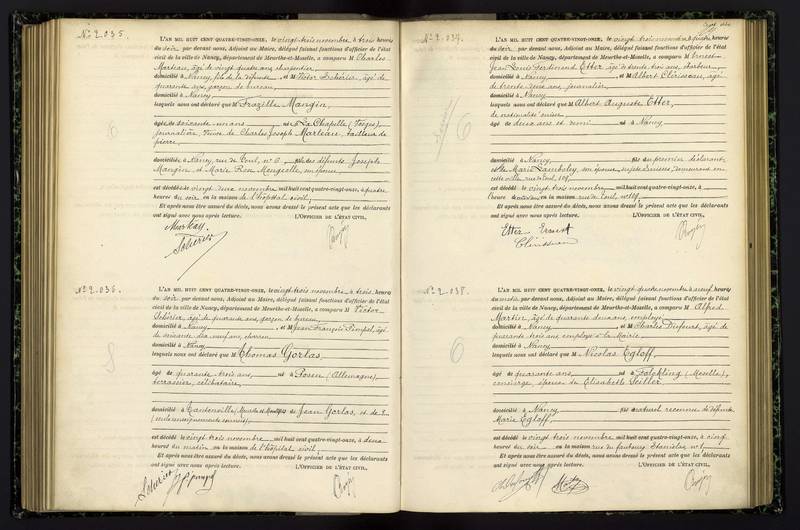 N° 2.035.
L'AN MIL HUIT CENT QUATRE-VINGT-ONZE, le vingt trois novembre à trois heures
du soir par devant nous, Adjoint au Maire, délégué faisant fonctions d'officier de l'état
civil de la ville de Nancy, département de Meurthe-et-Moselle, a comparu M Charles
Marteau, âgé de vingt quatre ans, charpentier
domicilié à Nancy, fils de la défunte, et M Victor Schérier, âgé de
quarante ans, garçon de bureau,
domicilié à Nancy
lesquels nous ont déclaré que M Frazille Mangin,
âgée de soixante un ans, née à La Chapelle (Vosges),
journalière, veuve de Charles Joseph Marteau, tailleur de
pierre
domiciliée à Nancy, rue de Toul, n° 6, fille des défunts Joseph
Mangin et Marie Rose, son épouse,
est décédée le vingt deux novembre mil huit cent quatre-vingt-onze, à quatre
heures du soir en la maison de l'hôpital civil;
Et après nous être assuré du décès, nous avons dressé le présent acte que les déclarants
ont signé avec nous après lecture. L'OFFICIER DE L'ÉTAT CIVIL,
N° 2.036.
L'AN MIL HUIT CENT QUATRE-VINGT-ONZE, le vingt trois novembre à trois heures
du soir par devant nous, Adjoint au Maire, délégué faisant fonctions d'officier de l'état
civil de la ville de Nancy, département de Meurthe-et-Moselle, a comparu M Victor
Schérier, âgé de quarante ans, garçon de bureau,
domicilié à Nancy, et M Jean François, âgé
de soixante dix neuf ans,
domicilié à Nancy
lesquels nous ont déclaré que M Thomas Gorlas,
âgé de quarante trois ans, né à Posen (Allemagne),
terrassier, célibataire
domicilié à (Meurthe et Moselle) fils de Jean Gorlas, et de
(seuls renseignements connus),
est décédé le vingt trois novembre mil huit cent quatre-vingt-onze, à deux
heures du matin en la maison de l'hôpital civil;
Et après nous être assuré du décès, nous avons dressé le présent acte que les déclarants
ont signé avec nous après lecture. L'OFFICIER DE L'ÉTAT CIVIL,
N° 2.037.
L'AN MIL HUIT CENT QUATRE-VINGT-ONZE, le vingt trois novembre à quatre heures
du soir par devant nous, Adjoint au Maire, délégué faisant fonctions d'officier de l'état
civil de la ville de Nancy, département de Meurthe-et-Moselle, a comparu M Ernest
Jean Louis Ferdinand Etter, âgé de trente trois ans,
domicilié à Nancy, et M Albert Clérisseau, âgé
de trente deux ans, journalier,
domicilié à Nancy
lesquels nous ont déclaré que M Albert Auguste Etter,
de nationalité suisse,
âgé de deux ans et demi né à Nancy
domicilié à Nancy, fils du premier déclarant
et de Marie Lambeley, son épouse, demeurant en
cette ville rue de Toul, 109,
est décédé le vingt trois novembre mil huit cent quatre-vingt-onze, à
heure en la maison rue de Toul, n° 109;
Et après nous être assuré du décès, nous avons dressé le présent acte que les déclarants
ont signé avec nous après lecture. L'OFFICIER DE L'ÉTAT CIVIL,
Etter Ernest
N° 2.038.
L'AN MIL HUIT CENT QUATRE-VINGT-ONZE, le vingt quatre novembre à neuf heures
du matin par devant nous, Adjoint au Maire, délégué faisant fonctions d'officier de l'état
civil de la ville de Nancy, département de Meurthe-et-Moselle, a comparu M Alfred
Martin, âgé de quarante deux ans, employé
domicilié à Nancy, et M Charles Dufourt, âgé de
quarante trois ans, employé à la Mairie
domicilié à Nancy
lesquels nous ont déclaré que M Nicolas Egloff,
âgé de quarante ans, né à Folckling (Moselle),
concierge, époux de Elisabeth Seiller
domicilié à Nancy, fils naturel reconnu de défunte
Marie Egloff,
est décédé le vingt trois novembre mil huit cent quatre-vingt-onze, à cinq
heures du soir en la maison rue du faubourg Stanislas n° 1
Et après nous être assuré du décès, nous avons dressé le présent acte que les déclarants
ont signé avec nous après lecture. L'OFFICIER DE L'ÉTAT CIVIL,